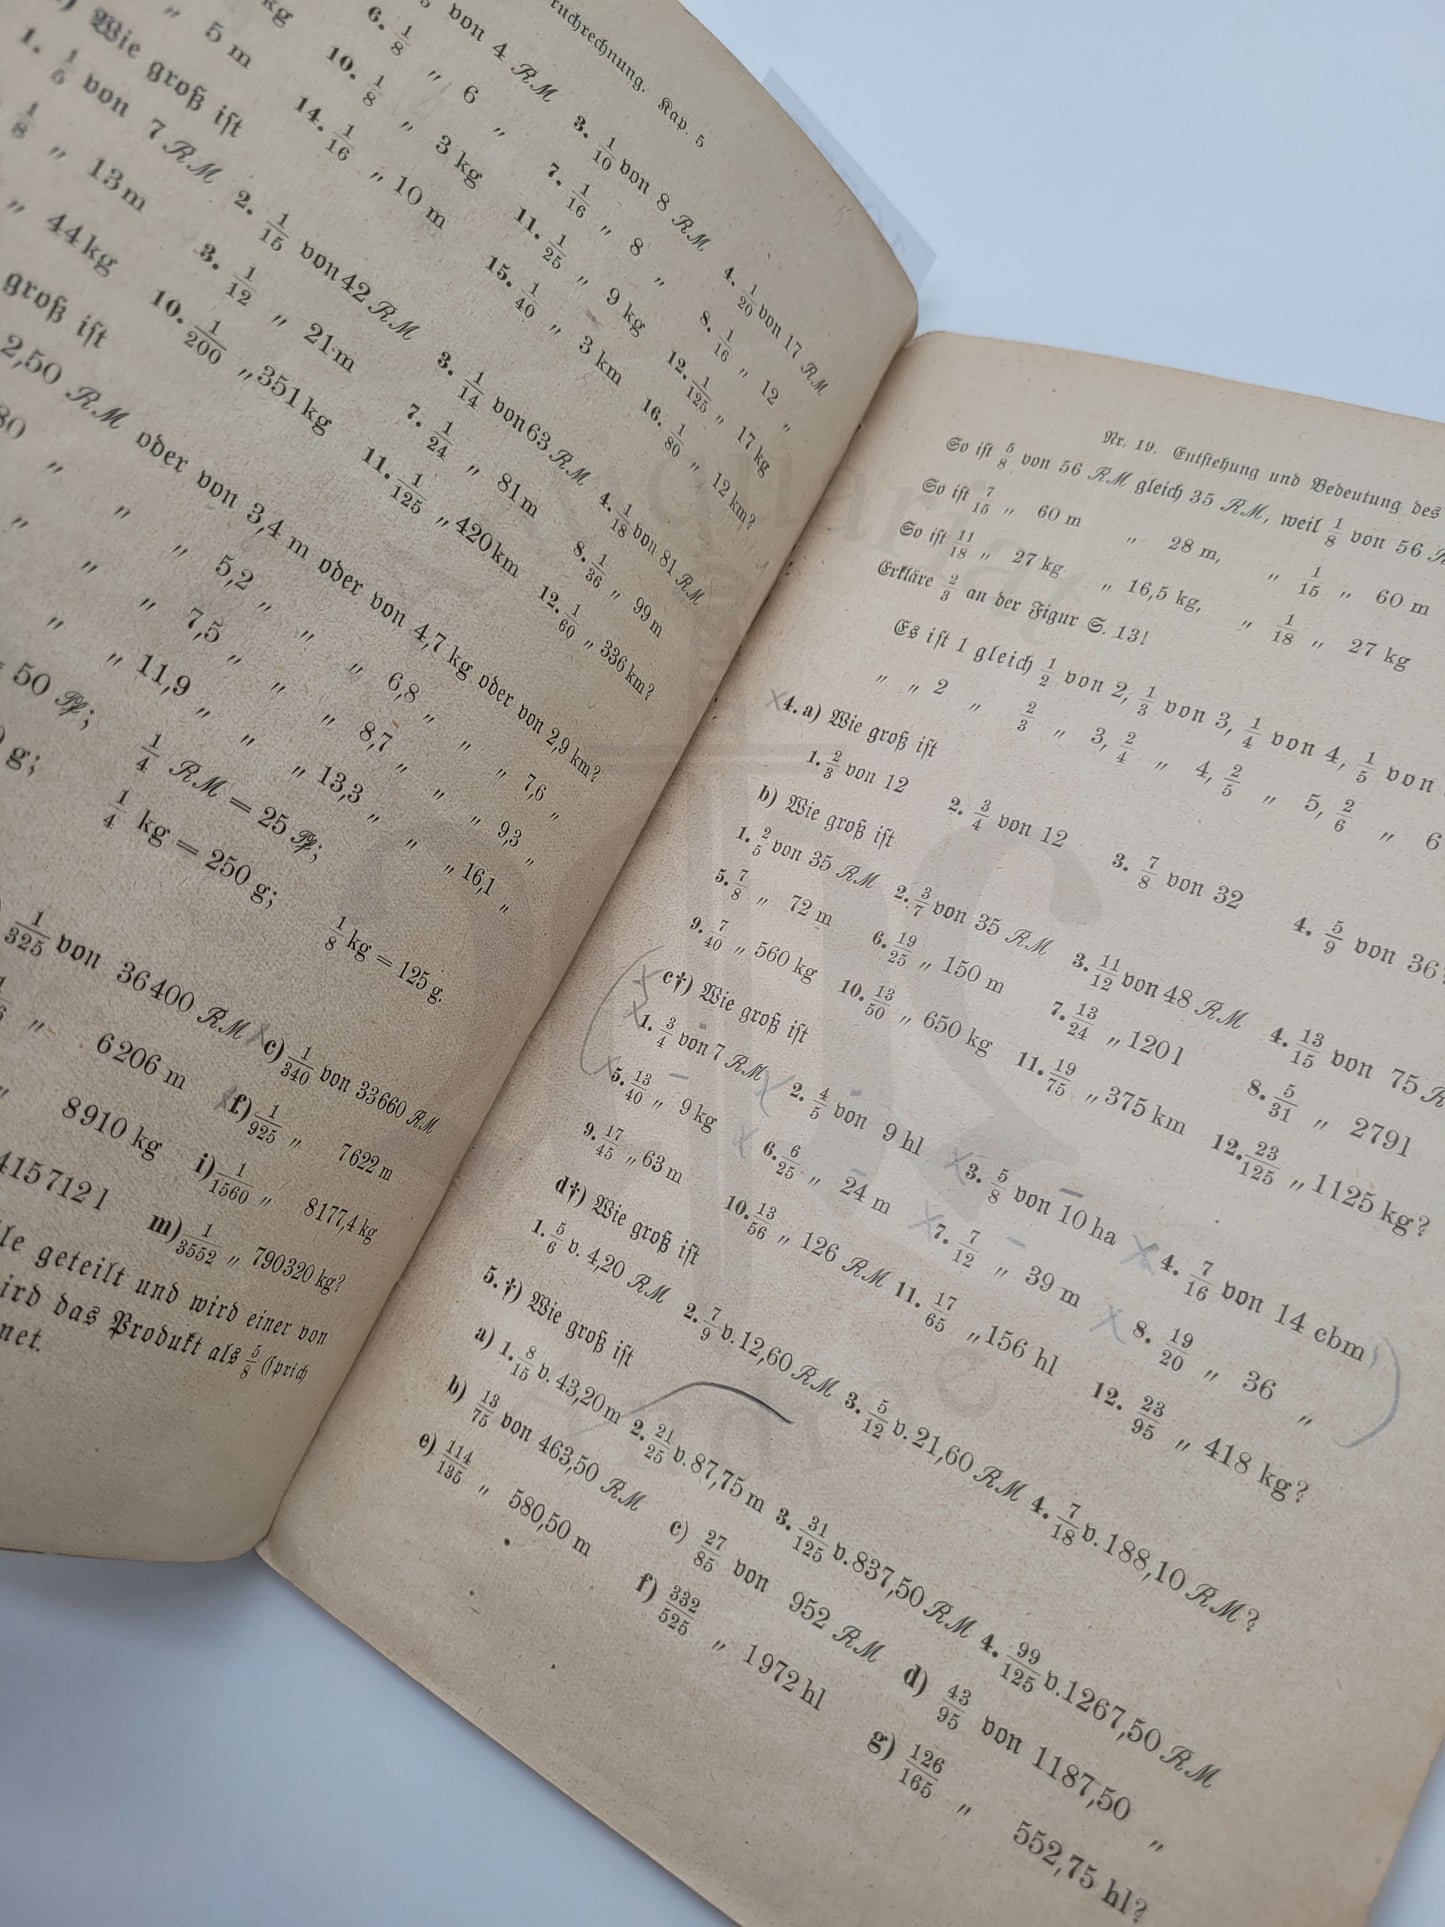 ruchrechnung. Kap. 5
von 4 RM 3. 1/10 von 8 RM 4. 1/20 von 17 RM
6. 1/8 „ 6 „ 7. 1/16 „ 8 „ 8. 1/16 „ 12 „
kg 10. 1/8 „ 3 kg 11. 1/25 „ 9 kg 12. 1/125 „ 17 kg
„ 5 m 14. 1/16 „ 10 m 15. 1/40 „ 3 km 16. 1/80 „ 12 km?
Wie groß ist
1. 1/5 von 7 RM 2. 1/15 von 42 RM 3. 1/14 von 63 RM 4. 1/18 von 81 RM
1/8 „ 13 m 3. 1/12 „ 21 m 7. 1/24 „ 81 m 8. 1/36 „ 99 m
„ 44 kg 10. 1/200 „ 351 kg 11. 1/125 „ 420 km 12. 1/60 „ 336 km?
groß ist
2,50 RM oder von 3,4 m oder von 4,7 kg oder von 2,9 km?
80 „ „ „ 5,2 „ „ „ 6,8 „ „ „ 7,6 „
„ „ „ 7,5 „ „ „ 8,7 „ „ „ 9,3 „
„ „ 11,9 „ „ „ 13,3 „ „ „ 16,1 „
= 50 Pf; 1/4 RM = 25 Pf;
g; 1/4 kg = 250 g; 1/8 kg = 125 g.
1/325 von 36400 RM c) 1/340 von 33660 RM
„ 6206 m f) 1/925 „ 7622 m
„ 8910 kg i) 1/1560 „ 8177,4 kg
415712 l m) 1/3552 „ 790320 kg?
le geteilt und wird einer von
ird das Produkt als 5/8 (sprich
net.
Nr. 19. Entstehung und Bedeutung des
So ist 5/8 von 56 RM gleich 35 RM, weil 1/8 von 56 R
So ist 7/15 „ 60 m „ 28 m, „ 1/15 „ 60 m
So ist 11/18 „ 27 kg „ 16,5 kg, „ 1/18 „ 27 kg
Erkläre 2/3 an der Figur S. 13!
Es ist 1 gleich 1/2 von 2, 1/3 von 3, 1/4 von 4, 1/5 von
„ „ 2 „ 2/3 „ 3, 2/4 „ 4, 2/5 „ 5, 2/6 „ 6
4. a) Wie groß ist
1. 2/3 von 12 2. 3/4 von 12 3. 7/8 von 32 4. 5/9 von 36?
b) Wie groß ist
1. 2/5 von 35 RM 2. 3/7 von 35 RM 3. 11/12 von 48 RM 4. 13/15 von 75 R
5. 7/8 „ 72 m 6. 19/25 „ 150 m 7. 13/24 „ 120 l 8. 5/31 „ 279 l
9. 7/40 „ 560 kg 10. 13/50 „ 650 kg 11. 19/75 „ 375 km 12. 23/125 „ 1125 kg?
c†) Wie groß ist
1. 3/4 von 7 RM 2. 4/5 von 9 hl 3. 5/8 von 10 ha 4. 7/16 von 14 cbm
5. 13/40 „ 9 kg 6. 6/25 „ 24 m 7. 7/12 „ 39 m 8. 19/20 „ 36 „
9. 17/45 „ 63 m 10. 13/56 „ 126 RM 11. 17/65 „ 156 hl 12. 23/95 „ 418 kg?
d†) Wie groß ist
1. 5/6 v. 4,20 RM 2. 7/9 v. 12,60 RM 3. 5/12 v. 21,60 RM 4. 7/18 v. 188,10 RM?
5. †) Wie groß ist
a) 1. 8/15 v. 43,20 m 2. 21/25 v. 87,75 m 3. 31/125 v. 837,50 RM 4. 99/125 v. 1267,50 RM
b) 13/75 von 463,50 RM c) 27/85 von 952 RM d) 43/95 von 1187,50 „
e) 114/135 „ 580,50 m f) 332/525 „ 1972 hl g) 126/165 „ 552,75 hl?